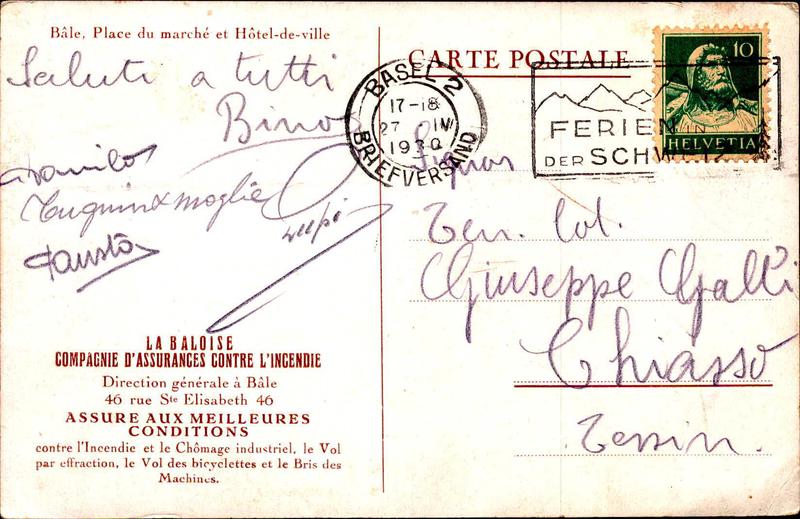 Bâle, Place du marché et Hôtel-de-ville
Saluti a tutti
Bino
Danilo
& moglie
Lupi
Fausto
LA BALOISE
COMPAGNIE D'ASSURANCES CONTRE L'INCENDIE
Direction générale à Bâle
46 rue Ste Elisabeth 46
ASSURE AUX MEILLEURES
CONDITIONS
contre l'Incendie et le Chômage industriel, le Vol
par effraction, le Vol des bicyclettes et le Bris des
Machines.
CARTE POSTALE
BASEL 2
17-18
27 IV
1930
BRIEFVERSAND
FERIEN IN
DER SCHWEIZ
10
HELVETIA
Signor
Ten. Col.
Giuseppe Galli
Chiasso
Tessin.